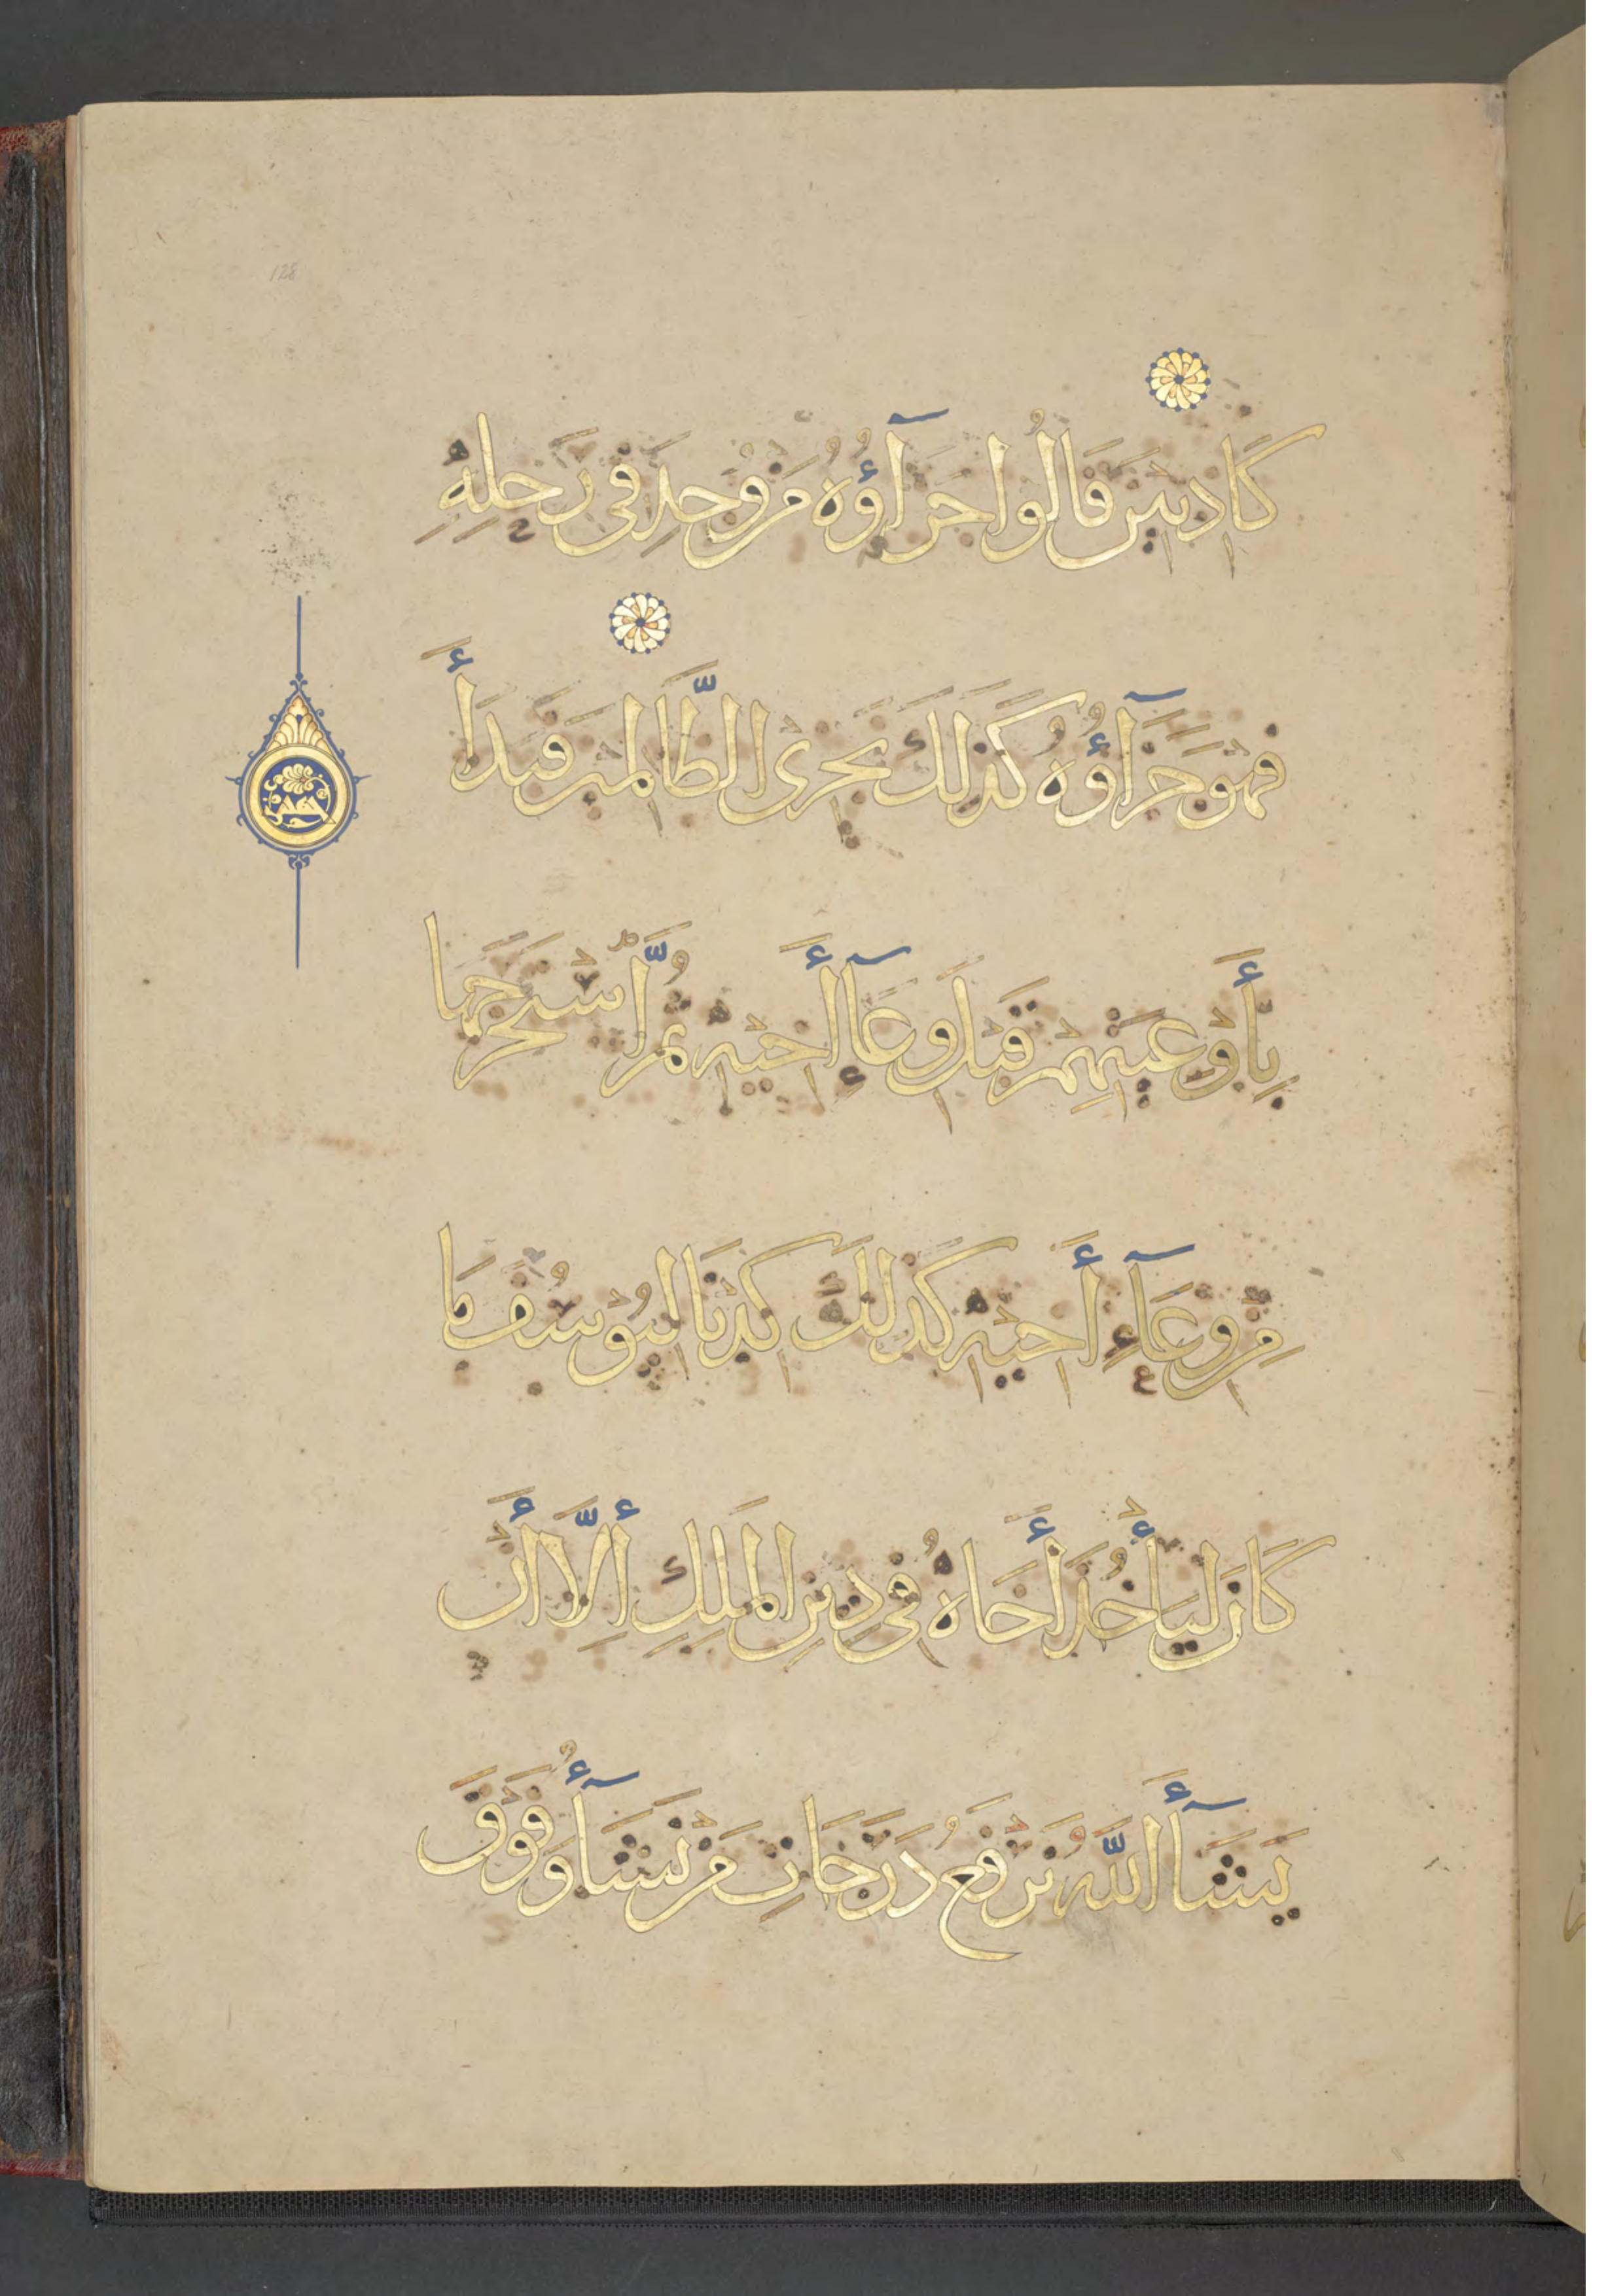 128
كَاذِبِينَ قَالُوا جَزَآؤُهُ مَنْ وُجِدَ فِي رَحْلِهِ
فَهُوَ جَزَآؤُهُ كَذَلِكَ نَجْزِى الظَّالِمِينَ فَبَدَأَ
بِأَوْعِيَتِهِمْ قَبْلَ وِعَآءِ أَخِيهِ ثُمَّ اسْتَخْرَجَهَا
مِنْ وِعَآءِ أَخِيهِ كَذَلِكَ كِدْنَا لِيُوسُفَ مَا
كَانَ لِيَأْخُذَ أَخَاهُ فِي دِينِ الْمَلِكِ إِلَّا أَنْ
يَشَآءَ اللَّهُ نَرْفَعُ دَرَجَاتِ مَنْ نَشَآءُ وَفَوْقَ